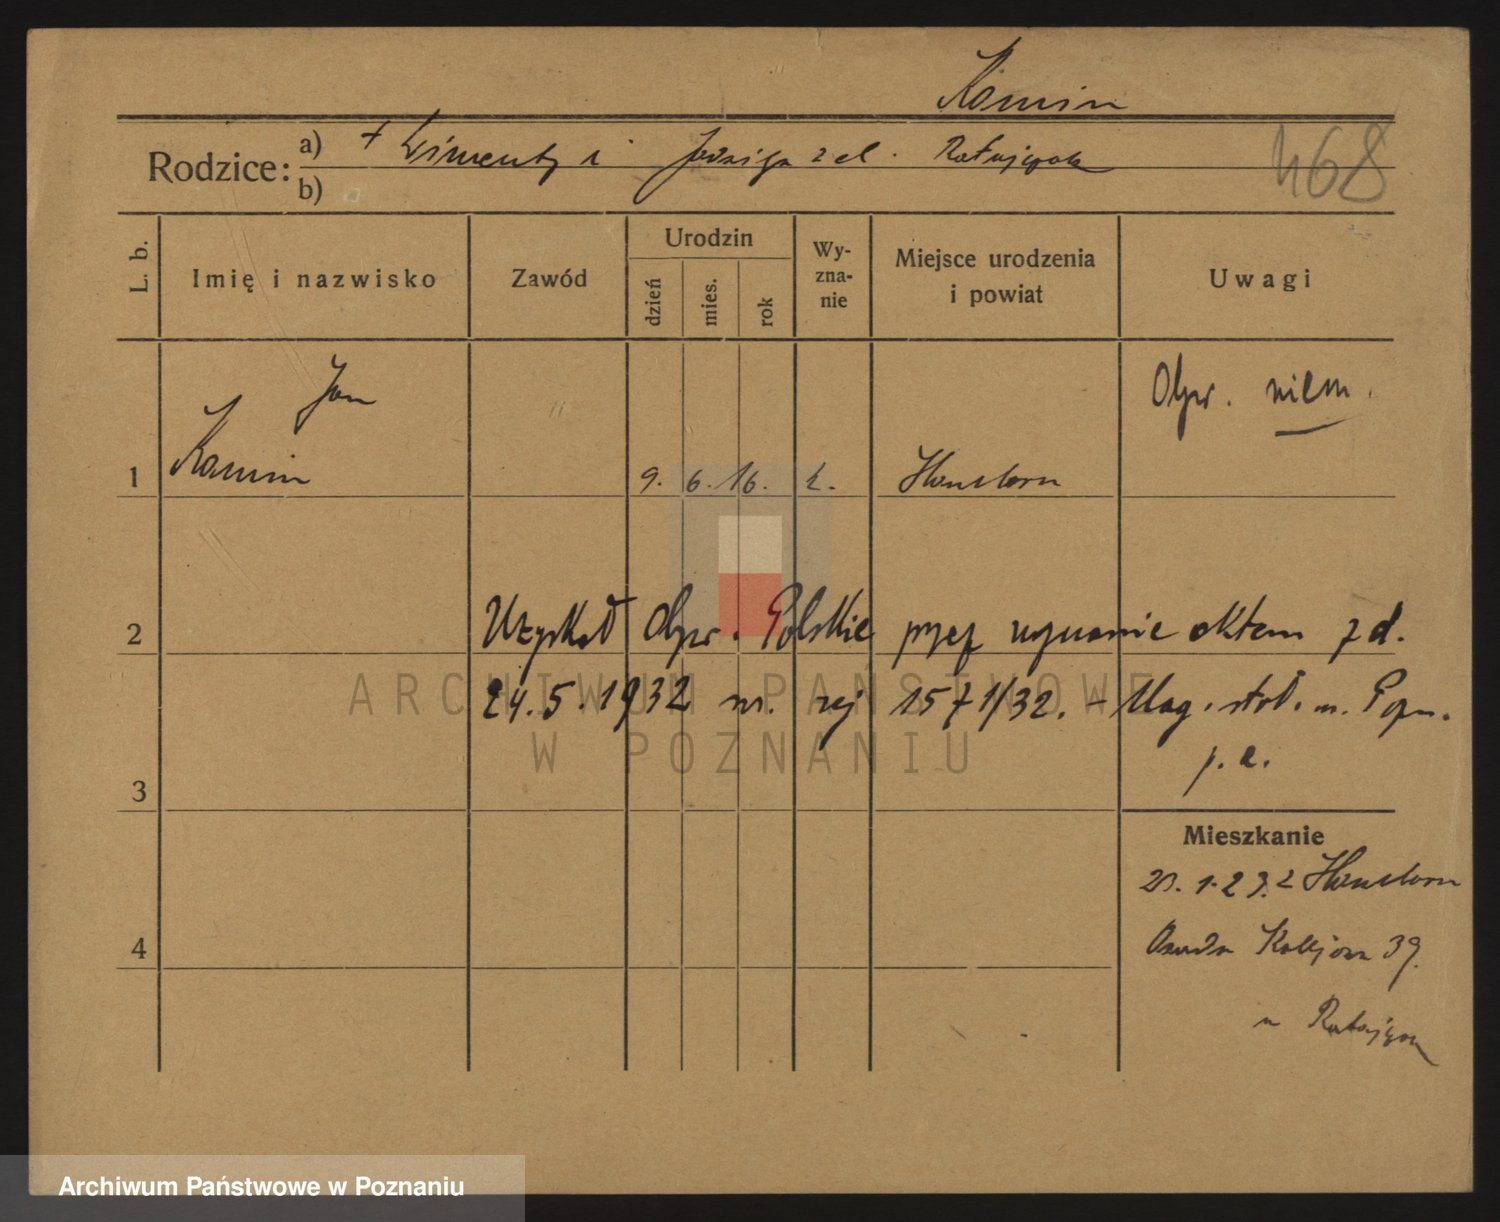 Kamin
Rodzice: a) + Wincenty i Jadwiga z d. Ratajczak
b)
468
L. b.
Imię i nazwisko
Zawód
Urodzin
dzień
mies.
rok
Wy-
zna-
nie
Miejsce urodzenia
i powiat
Uwagi
Jan
Obyw. niem.
1 Kamin 9. 6. 16. k. Hamborn
2 Uzyskał Obyw. Polskie przez uznanie aktem z d.
24.5.1932 nr. rej 1571/32. - Mag. stoł. m. Pozn.
3
ARCHIWUM PAŃSTWOWE
W POZNANIU
Mieszkanie
23. z Hamborn
4
39.
u Ratajczak
Archiwum Państwowe w Poznaniu